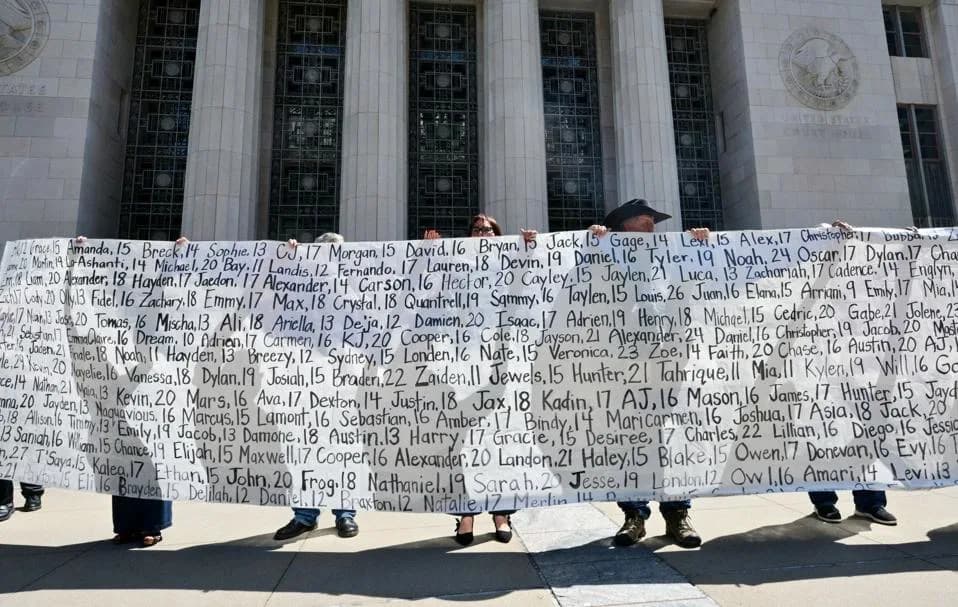 UNITED STATES
COURT HOUSE
Grace, 15 Amanda, 15 Breck, 14 Sophie, 13 CJ, 17 Morgan, 15 David, 16 Bryan, 15 Jack, 15 Gage, 14 Lexi, 15 Alex, 17 Christopher, 17 Bubba,
Ashanti, 14 Michael, 20 Bay, 11 Landis, 12 Fernando, 17 Lauren, 18 Devin, 19 Daniel, 16 Tyler, 19 Noah, 24 Oscar, 17 Dylan, 17
Liam, 20 Alexander, 18 Hayden, 17 Jaedon, 17 Alexander, 14 Carson, 16 Hector, 20 Cayley, 15 Jaylen, 21 Luca, 13 Zachariah, 17 Cadence, 14 Englyn,
Cody, 20 Olly, 13 Fidel, 16 Zachary, 18 Emmy, 17 Max, 18 Crystal, 18 Quantrell, 19 Sammy, 16 Taylen, 15 Louis, 26 Juan, 16 Elana, 15 Arram, 9 Emily, 17 Mia,
20 Tomas, 16 Mischa, 13 Ali, 18 Ariella, 13 De'ja, 12 Damien, 20 Isaac, 17 Adrien, 19 Henry, 18 Michael, 15 Cedric, 20 Gabe, 21 Jolene,
16 Dream, 10 Adrien, 17 Carmen, 16 KJ, 20 Cooper, 16 Cole, 18 Jayson, 21 Alexander, 24 Daniel, 16 Christopher, 19 Jacob, 20
18 Noah, 11 Hayden, 13 Breezy, 12 Sydney, 15 Londen, 16 Nate, 15 Veronica, 23 Zoe, 14 Faith, 20 Chase, 16 Austin, 20 AJ,
16 Vanessa, 18 Dylan, 19 Josiah, 15 Braden, 22 Zaiden, 11 Jewels, 15 Hunter, 21 Tahrique, 11 Mia, 11 Kylen, 19 Will, 16
Nathan, 13 Kevin, 20 Mars, 16 Ava, 17 Dexton, 14 Justin, 18 Jax, 18 Kadin, 17 AJ, 16 Mason, 16 James, 17 Hunter, 15
20 Jayden, Naquavious, 16 Marcus, 15 Lamont, 16 Sebastian, 16 Amber, 17 Bindy, 14 Maricarmen, 16 Joshua, 17 Asia, 18 Jack, 20
Allison, 16 Timmy, 13 Emily, 19 Jacob, 13 Damone, 18 Austin, 13 Harry, 17 Gracie, 15 Desiree, 17 Charles, 22 Lillian, 16 Diego, 16
Sariah, 16 15 Chance, 19 Elijah, 15 Maxwell, 17 Cooper, 16 Alexander, 20 Landon, 21 Haley, 15 Blake, 15 Owen, 17 Donevan, 16 Evy, 16
27 T'Saya, 15 Kalea, 17 Ethan, 15 John, 20 Frog, 18 Nathaniel, 19 Sarah, 20 Jesse, 19 London, 12 Owl, 16 Amari, 14 Levi, 13
Eli, 16 Brayden, 15 Delilah, 12 Daniel, 12 Braxton, 12 Natalie, 17 Merlin, 14